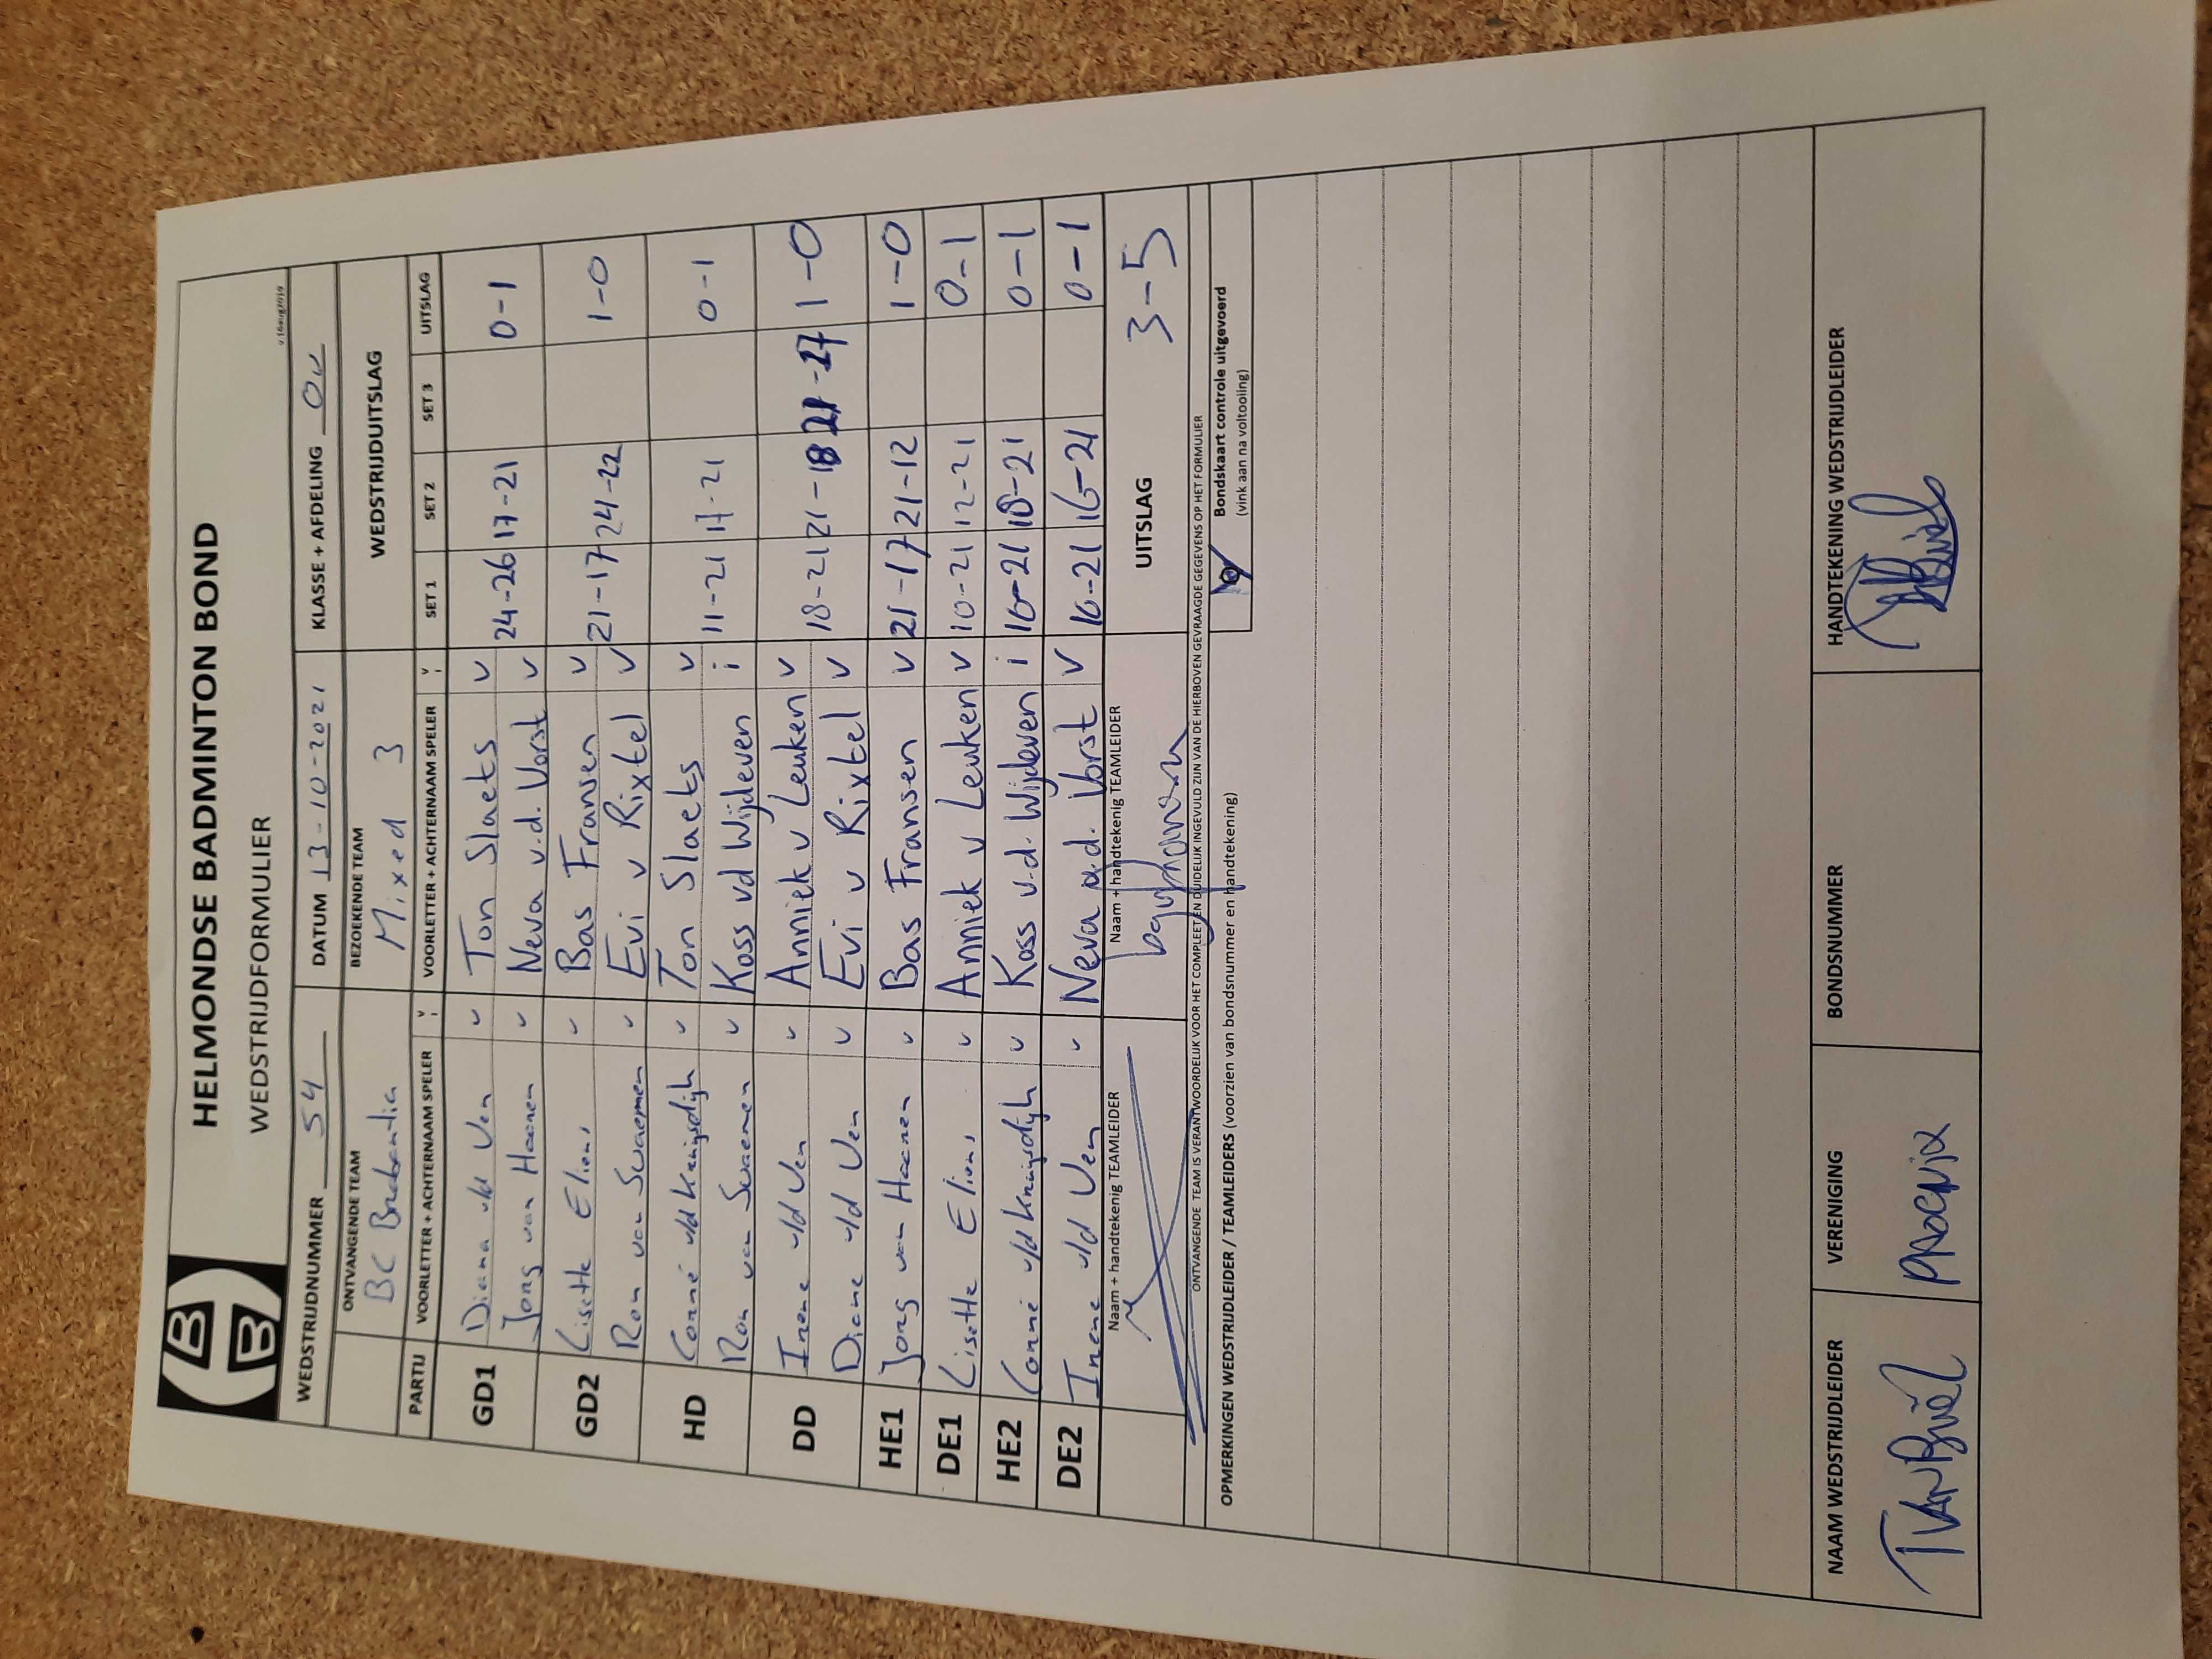 HELMONDSE BADMINTON BOND
WEDSTRIJDFORMULIER
v16aug2019
WEDSTRIJDNUMMER 54 DATUM 13-10-2021 KLASSE + AFDELING Ov
ONTVANGENDE TEAM BEZOEKENDE TEAM WEDSTRIJDUITSLAG
BC Brabantia Mixed 3
PARTIJ VOORLETTER + ACHTERNAAM SPELER v i VOORLETTER + ACHTERNAAM SPELER v i SET 1 SET 2 SET 3 UITSLAG
GD1 Diana v/d Ven v Ton Slaets v 24-26 17-21 0-1
Jong van Haenen v Neva v.d. Vorst v
GD2 Lisette Elions v Bas Fransen v 21-17 24-22 1-0
Ron van Swaemen v Evi v Rixtel v
HD Corné v/d Kruijsdijk v Ton Slaets v 11-21 17-21 0-1
Ron van Swaemen v Koss vd Wijdeven i
DD Irene v/d Ven v Anniek v Leuken v 18-21 21-18 1-0
Diane v/d Ven v Evi v Rixtel v
HE1 Jong van Haenen v Bas Fransen v 21-17 21-12 1-0
DE1 Lisette Elions v Anniek v Leuken v 10-21 12-21 0-1
HE2 Corné v/d Kruijsdijk v Koss v.d. Wijdeven i 16-21 18-21 0-1
DE2 Irene v/d Ven v Neva v.d. Vorst v 16-21 16-21 0-1
Naam + handtekenig TEAMLEIDER Naam + handtekenig TEAMLEIDER UITSLAG 3-5
ONTVANGENDE TEAM IS VERANTWOORDELIJK VOOR HET COMPLEET EN DUIDELIJK INGEVULD ZIJN VAN DE HIERBOVEN GEVRAAGDE GEGEVENS OP HET FORMULIER
OPMERKINGEN WEDSTRIJDLEIDER / TEAMLEIDERS (voorzien van bondsnummer en handtekening) Bondskaart controle uitgevoerd
(vink aan na voltooiing)
NAAM WEDSTRIJDLEIDER VERENIGING BONDSNUMMER HANDTEKENING WEDSTRIJDLEIDER